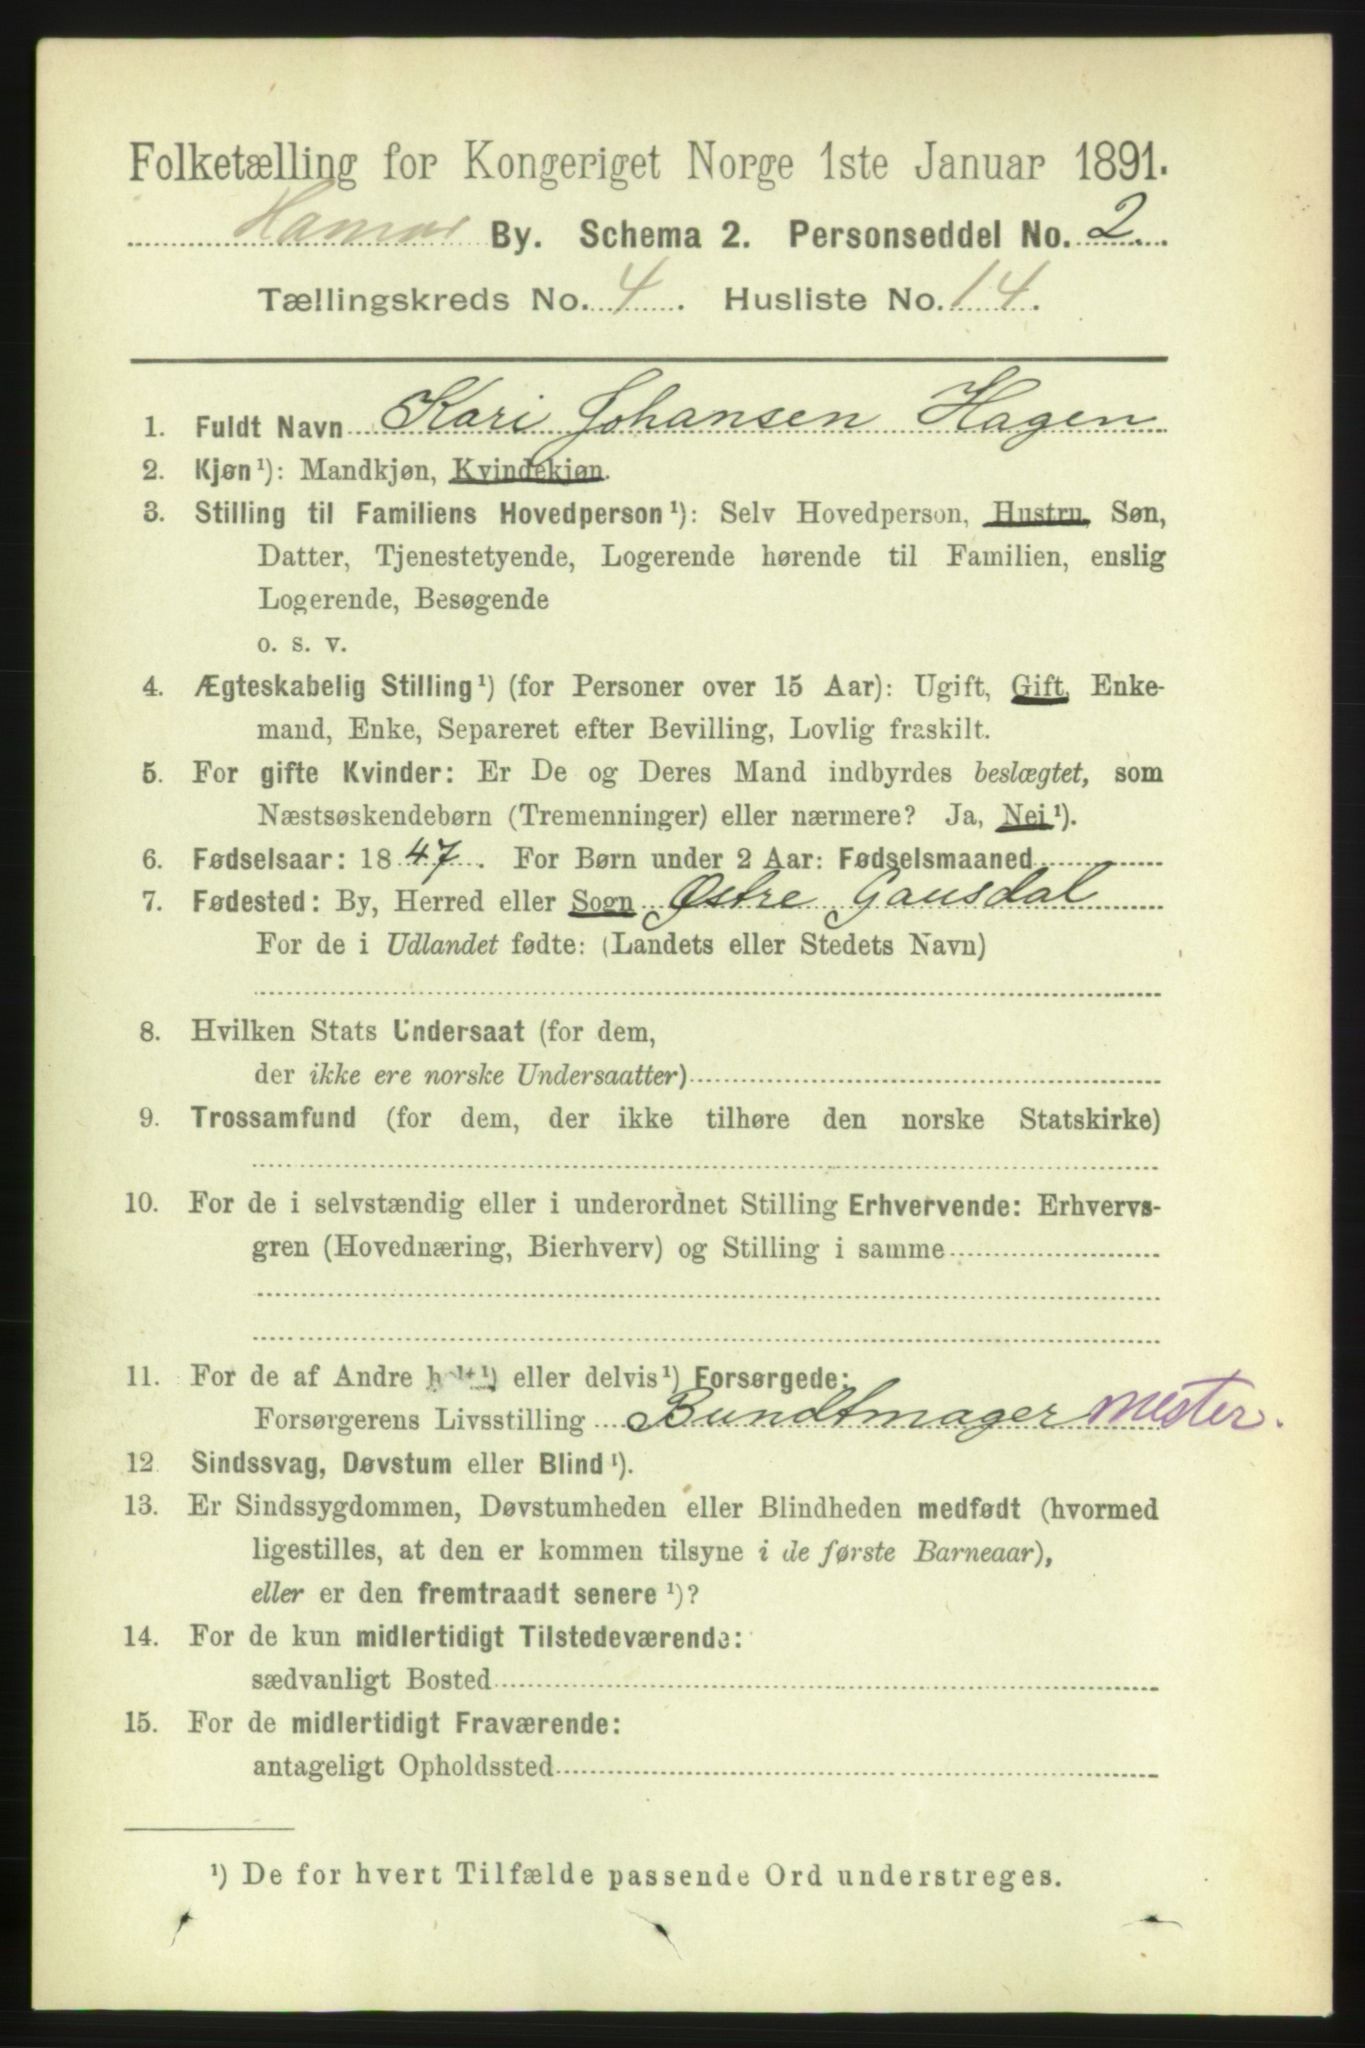 Folketælling for Kongeriget Norge 1ste Januar 1891.
Hamar By. Schema 2. Personseddel No. 2.
Tællingskreds No. 4. Husliste No. 14.
1. Fuldt Navn Kari Johansen Hagen
2. Kjøn¹): Mandkjøn, Kvindekjøn.
3. Stilling til Familiens Hovedperson¹): Selv Hovedperson, Hustru, Søn,
Datter, Tjenestetyende, Logerende hørende til Familien, enslig
Logerende, Besøgende
o. s. v.
4. Ægteskabelig Stilling¹) (for Personer over 15 Aar): Ugift, Gift, Enke-
mand, Enke, Separeret efter Bevilling, Lovlig fraskilt.
5. For gifte Kvinder: Er De og Deres Mand indbyrdes beslægtet, som
Næstsøskendebørn (Tremenninger) eller nærmere? Ja, Nei¹).
6. Fødselsaar: 1847. For Børn under 2 Aar: Fødselsmaaned
7. Fødested: By, Herred eller Sogn Østre Gausdal
For de i Udlandet fødte: (Landets eller Stedets Navn)
8. Hvilken Stats Undersaat (for dem,
der ikke ere norske Undersaatter)
9. Trossamfund (for dem, der ikke tilhøre den norske Statskirke)
10. For de i selvstændig eller i underordnet Stilling Erhvervende: Erhvervs-
gren (Hovednæring, Bierhverv) og Stilling i samme
11. For de af Andre helt¹) eller delvis¹) Forsørgede:
Forsørgerens Livsstilling Bundtmager mester.
12 Sindssvag, Døvstum eller Blind¹).
13. Er Sindssygdommen, Døvstumheden eller Blindheden medfødt (hvormed
ligestilles, at den er kommen tilsyne i de første Barneaar),
eller er den fremtraadt senere¹)?
14. For de kun midlertidigt Tilstedeværende:
sædvanligt Bosted
15. For de midlertidigt Fraværende:
antageligt Opholdssted
¹) De for hvert Tilfælde passende Ord understreges.